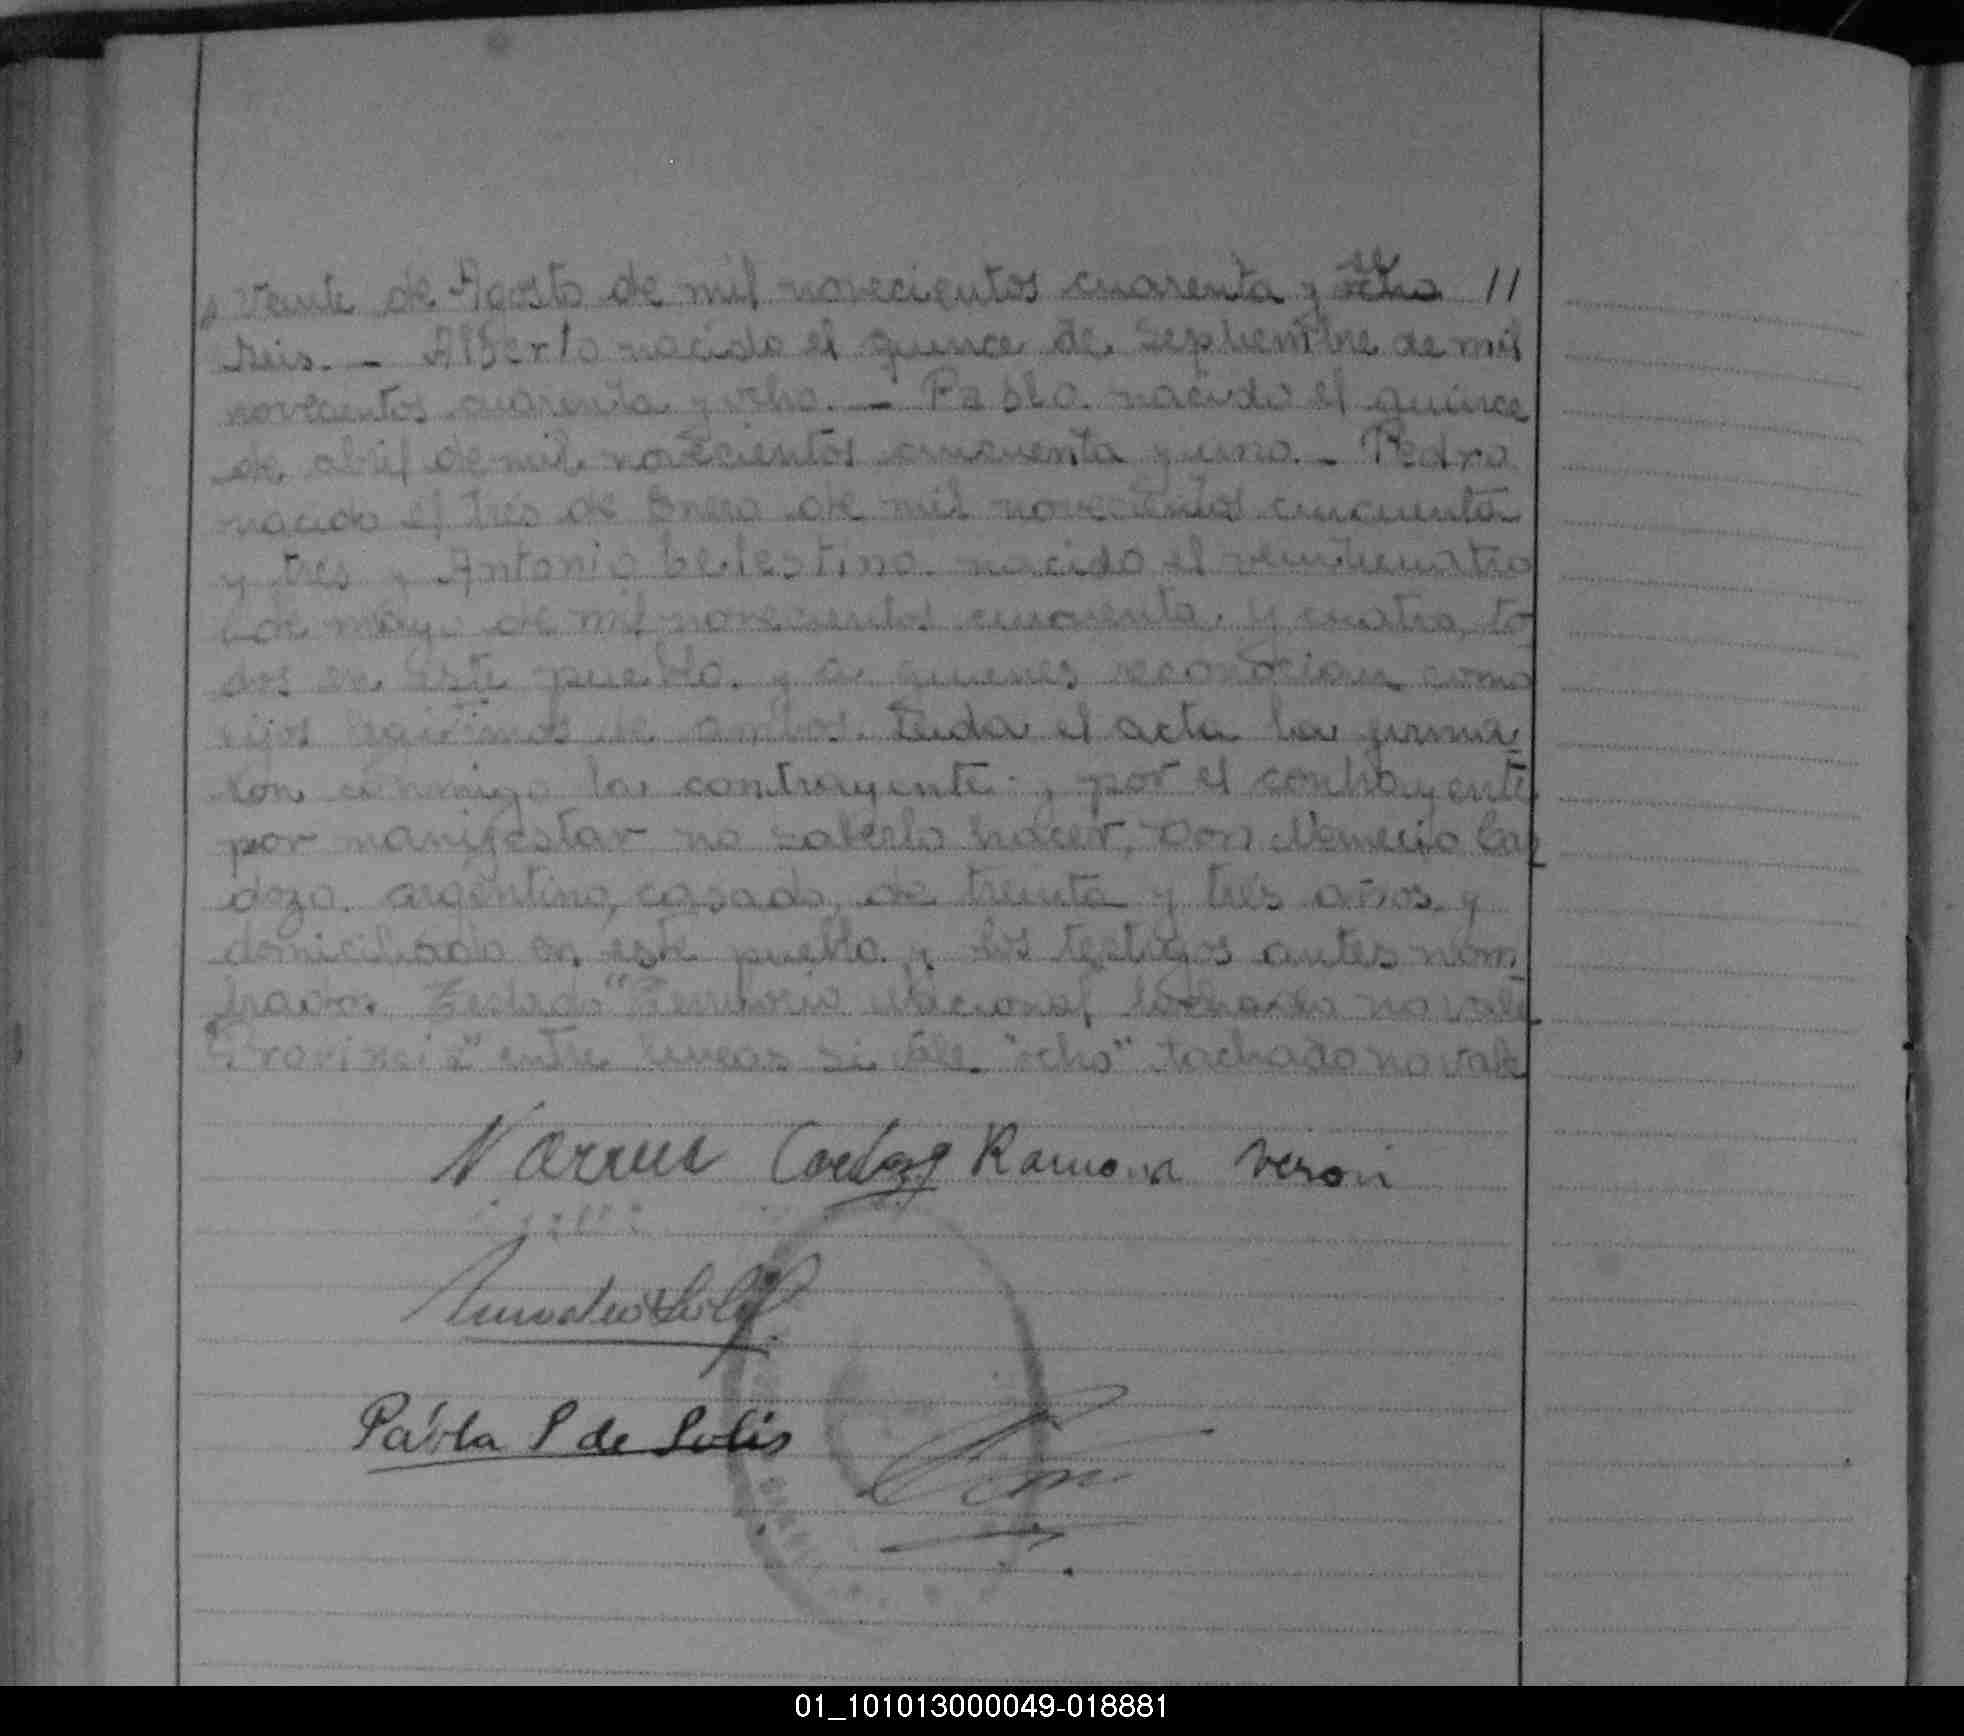 Veinte de Agosto de mil novecientos cuarenta y ocho //
seis. - Alberto nacido el quince de Septiembre de mil
novecientos cuarenta y ocho. - Pablo nacido el quince
de abril de mil novecientos cincuenta y uno. - Pedro
nacido el tres de Enero de mil novecientos cincuenta
y tres y Antonio Celestino nacido el veinticuatro
de mayo de mil novecientos cincuenta y cuatro, to
dos en este pueblo y a quienes reconocian como
hijos legitimos de ambos. Leida el acta la firma-
ron conmigo la contrayente y por el contrayente
por manifestar no saberlo hacer, Don Nemecio Car
dozo argentino, casado, de treinta y tres años y
domiciliado en este pueblo y los testigos antes nom-
brados. Testado "Territorio Nacional" tachado no vale
"Provincia" entre lineas si vale. "ocho" tachado no vale
Cardozo Ramona Veron
Pabla S de Solis
01_101013000049-018881